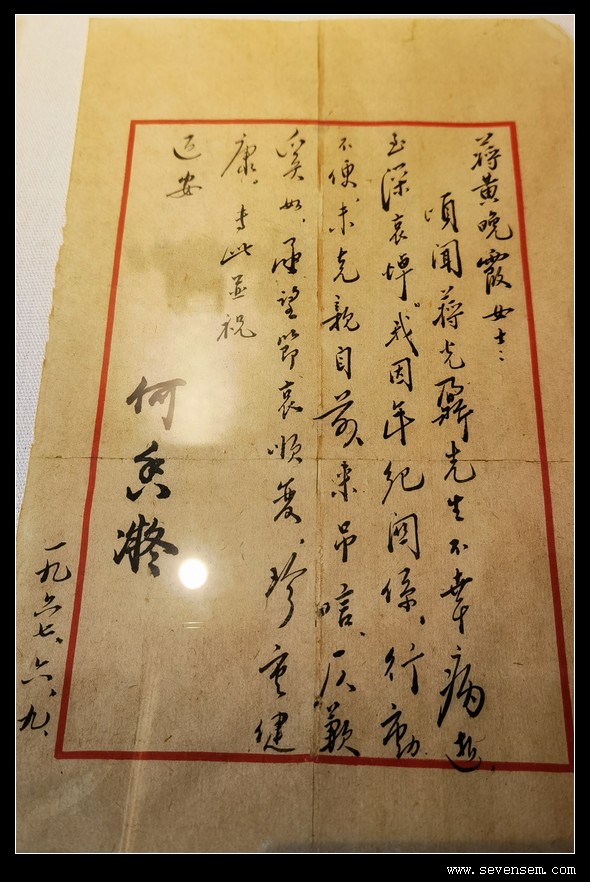 蒋黄晚霞女士：
頃聞蒋光鼐先生不幸病逝，
至深哀悼。我因年纪関係，行動
不便，未克親自前来吊唁，仄歉
奚如，亟望節哀順变，珍重健
康。专此並祝
近安
何香凝
一九六七、六、九、
www.sevensem.com